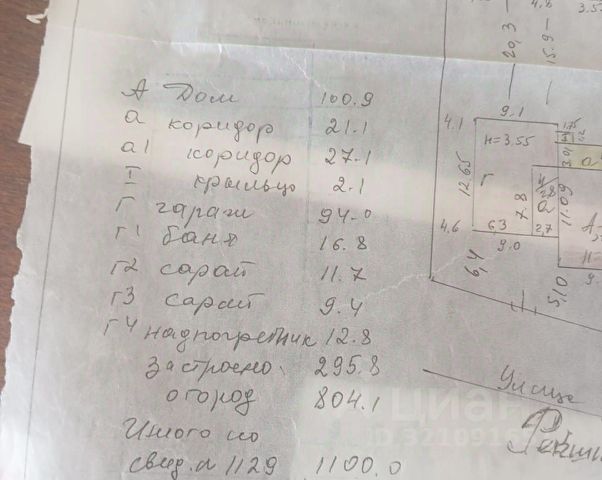 А Дом 100.9
а коридор 21.1
а1 коридор 27.1
I крыльцо 2.1
Г гараж 94.0
Г1 баня 16.8
Г2 сарай 11.7
Г3 сарай 9.4
Г4 надпогребник 12.8
Застроено. 295.8
огород 804.1
Итого по
свид. 1129 1100.0
20,3
15.9
4.8
3.5
9.1
4.1
1.75
H=3.55
3.01
12.65
Г
2.8
а
7.8
11.09
А
4.6
6.3
2.7
9.0
6,4
5,10
Улица
циан